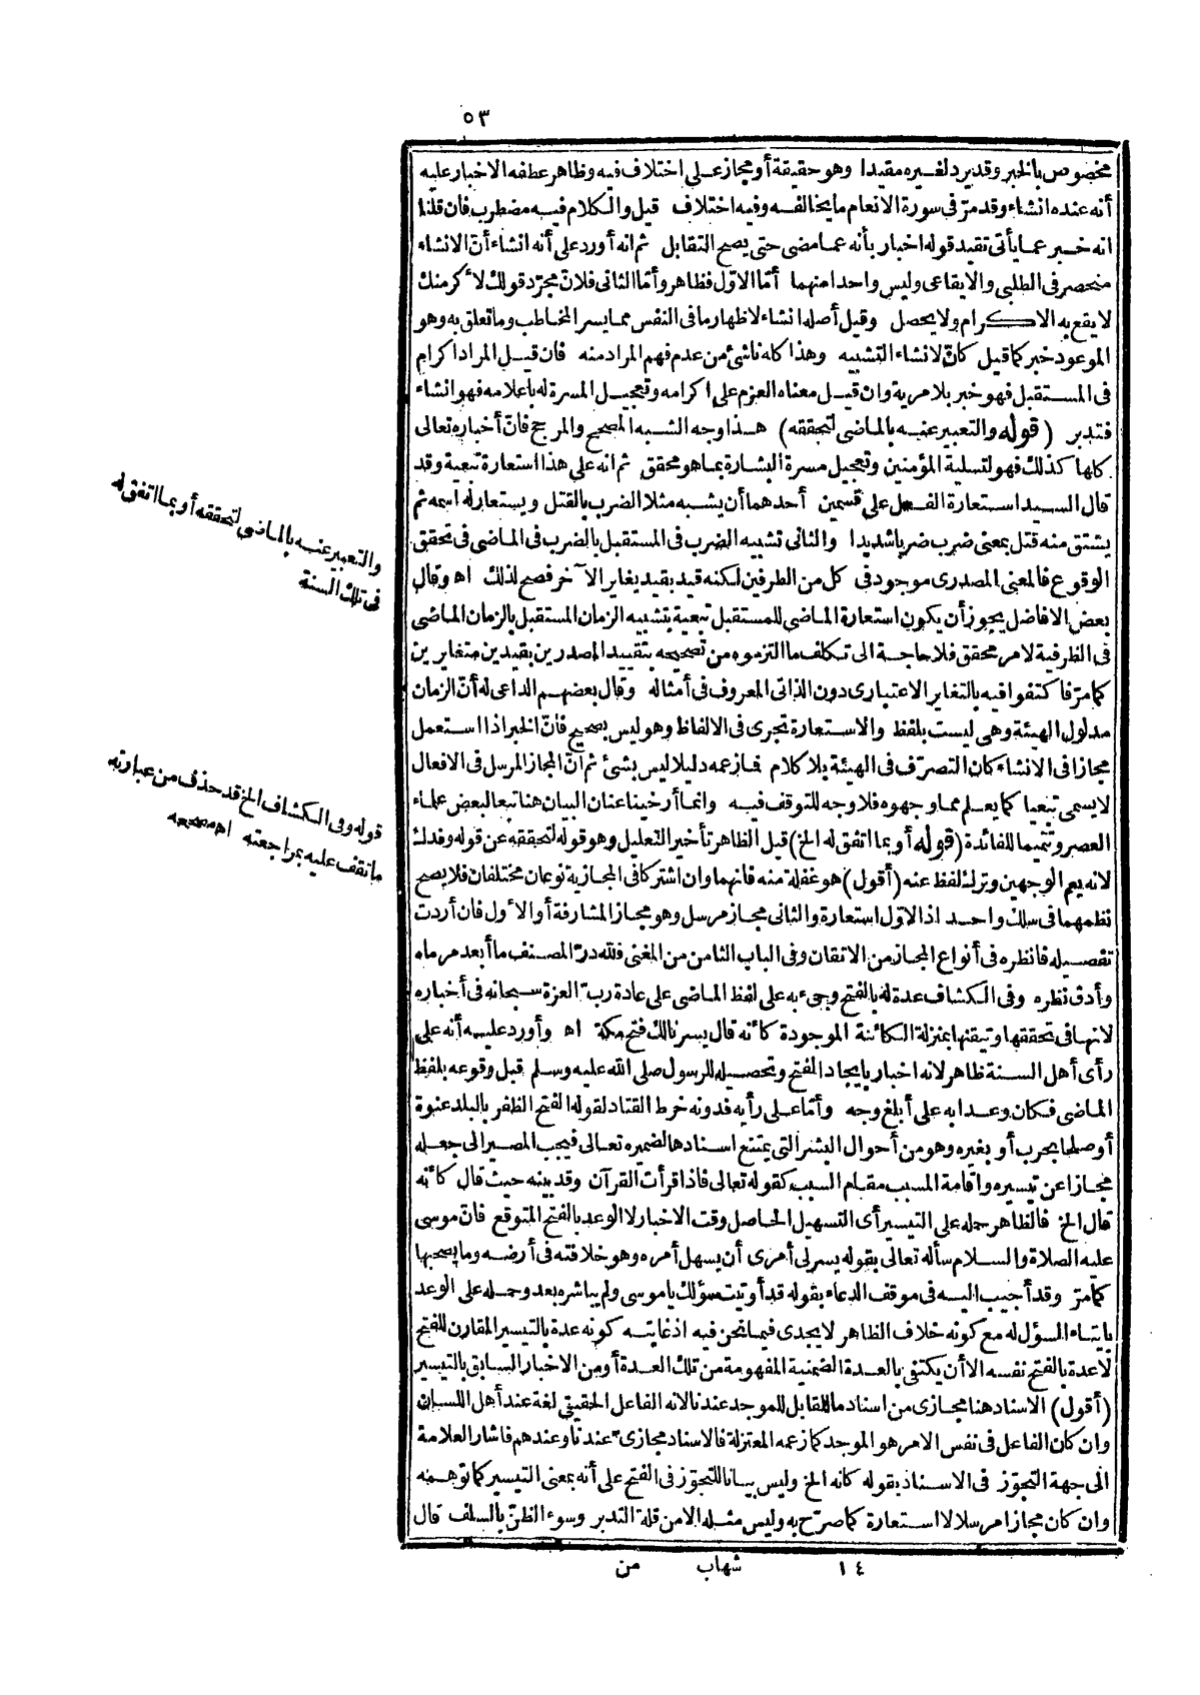 ٥٣
مخصوص بالخبر وقد يرد لغيره مقيدا وهو حقيقة أو مجاز على اختلاف فيه وظاهر عطفه الاخبار عليه
أنه عنده انشاء وقد مرّ فى سورة الانعام ما يخالفه وفيه اختلاف قيل والكلام فيه مضطرب فان قلنا
انه خبر عما يأتى تقيد قوله اخبار بأنه عما مضى حتى يصح التقابل ثم انه أورد على أنه انشاء أنّ الانشاء
منحصر فى الطلبى والايقاعى وليس واحدا منهما أمّا الاوّل فظاهر وأمّا الثانى فلانّ مجرّد قولك لأكرمنك
لا يقع به الاكرام ولا يحصل وقيل أصله انشاء لاظهار ما فى النفس مما يسر المخاطب وما تعلق به وهو
الموعود خبر كما قيل كانّ لانشاء التشبيه وهذا كله ناشئ من عدم فهم المراد منه فان قيل المراد اكرام
فى المستقبل فهو خبر بلا مرية وان قيل معناه العزم على اكرامه وتعجيل المسرة له باعلامه فهو انشاء
فتدبر (قوله والتعبير عنه بالماضى لتحققه) هذا وجه الشبه المصحح والمرجح فانّ أخباره تعالى
كلها كذلك فهو لتسلية المؤمنين وتعجيل مسرة البشارة بما هو محقق ثم انه على هذا استعارة تبعية وقد
قال السيد استعارة الفعل على قسمين أحدهما أن يشبه مثلا الضرب بالقتل ويستعار له اسمه ثم
يشتق منه قتل بمعنى ضرب ضربا شديدا والثانى تشبيه الضرب فى المستقبل بالضرب فى الماضى فى تحقق
الوقوع فالمعنى المصدرى موجود فى كل من الطرفين لكنه قيد بقيد يغاير الآخر فصح لذلك اه وقال
بعض الافاضل يجوز أن يكون استعارة الماضى للمستقبل تبعية بتشبيه الزمان المستقبل بالزمان الماضى
فى الظرفية لامر محقق فلا حاجة الى تكلف ما التزموه من تصحيحه بتقييد المصدرين بقيدين متغايرين
كما مرّ فاكتفوا فيه بالتغاير الاعتبارى دون الذاتى المعروف فى أمثاله وقال بعضهم الداعى له أنّ الزمان
مدلول الهيئة وهى ليست بلفظ والاستعارة تجرى فى الالفاظ وهو ليس بصحيح فانّ الخبر اذا استعمل
مجازا فى الانشاء كان التصرّف فى الهيئة بلا كلام فما زعمه دليلا ليس بشئ ثم انّ المجاز المرسل فى الافعال
لا يسمى تبعيا كما يعلم مما وجهوه فلا وجه للتوقف فيه وانما أرخينا عنان البيان هنا تبعا لبعض علماء
العصر وتتميما للفائدة (قوله أو بما اتفق له الخ) قيل الظاهر تأخير التعليل وهو قوله لتحققه عن قوله وفدك
لانه يعم الوجهين وترك لفظ عنه (أقول) هو غفلة منه فانهما وان اشتركا فى المجازية نوعان مختلفان فلا يصح
نظمهما فى سلك واحد اذ الاوّل استعارة والثانى مجاز مرسل وهو مجاز المشارفة أو الأول فان أردت
تفصيله فانظره فى أنواع المجاز من الاتقان وفى الباب الثامن من المغنى فلله درّ المصنف ما أبعد مرماه
وأدق نظره وفى الكشاف عدة له بالفتح وجىء به على لفظ الماضى على عادة ربّ العزة سبحانه فى أخباره
لانها فى تحققها وتيقنها بمنزلة الكائنة الموجودة كأنه قال يسرنا لك فتح مكة اه وأورد عليه أنه على
رأى أهل السنة ظاهر لانه اخبار بايجاد الفتح وتحصيله للرسول صلى الله عليه وسلم قبل وقوعه بلفظ
الماضى فكان وعدا به على أبلغ وجه وأمّا على رأيه فدونه خرط القتاد لقوله الفتح الظفر بالبلد عنوة
أو صلحا بحرب أو بغيره وهو من أحوال البشر التى يمتنع اسنادها لضميره تعالى فيجب المصير الى جعله
مجازا عن تيسيره واقامة المسبب مقام السبب كقوله تعالى فاذا قرأت القرآن وقد بينه حيث قال كأنه
قال الخ فالظاهر حمله على التيسير أى التسهيل الحاصل وقت الاخبار لا الوعد بالفتح المتوقع فانّ موسى
عليه الصلاة والسلام سأله تعالى بقوله يسر لى أمرى أن يسهل أمره وهو خلافته فى أرضه وما يصحبها
كما مرّ وقد أجيب اليه فى موقف الدعاء بقوله قد أوتيت سؤلك يا موسى ولم يباشره بعد وحمله على الوعد
بايتاء السؤل له مع كونه خلاف الظاهر لا يجدى فيما نحن فيه اذ غايته كونه عدة بالتيسير المقارن للفتح
لا عدة بالفتح نفسه الا أن يكتفى بالعدة الضمنية المفهومة من تلك العدة أو من الاخبار السابق بالتيسير
(أقول) الاسناد هنا مجازى من اسناد ما للقابل للموجد عندنا لانه الفاعل الحقيقى لغة عند أهل اللسان
وان كان الفاعل فى نفس الامر هو الموجد كما زعمه المعتزلة فالاسناد مجازىّ عندنا وعندهم فاشار العلامة
الى جهة التجوّز فى الاسناد بقوله كانه الخ وليس بيانا للتجوّز فى الفتح على أنه بمعنى التيسير كما توهمه
وان كان مجازا مرسلا لا استعارة كما صرّح به وليس مثله الا من قلة التدبر وسوء الظنّ بالسلف قال
والتعبير عنه بالماضى لتحققه أو بما اتفق له
فى تلك السنة
قوله وفى الكشاف الخ قد حذف من عبارته
ما تقف عليه بمراجعته اه مصححه
١٤ شهاب من